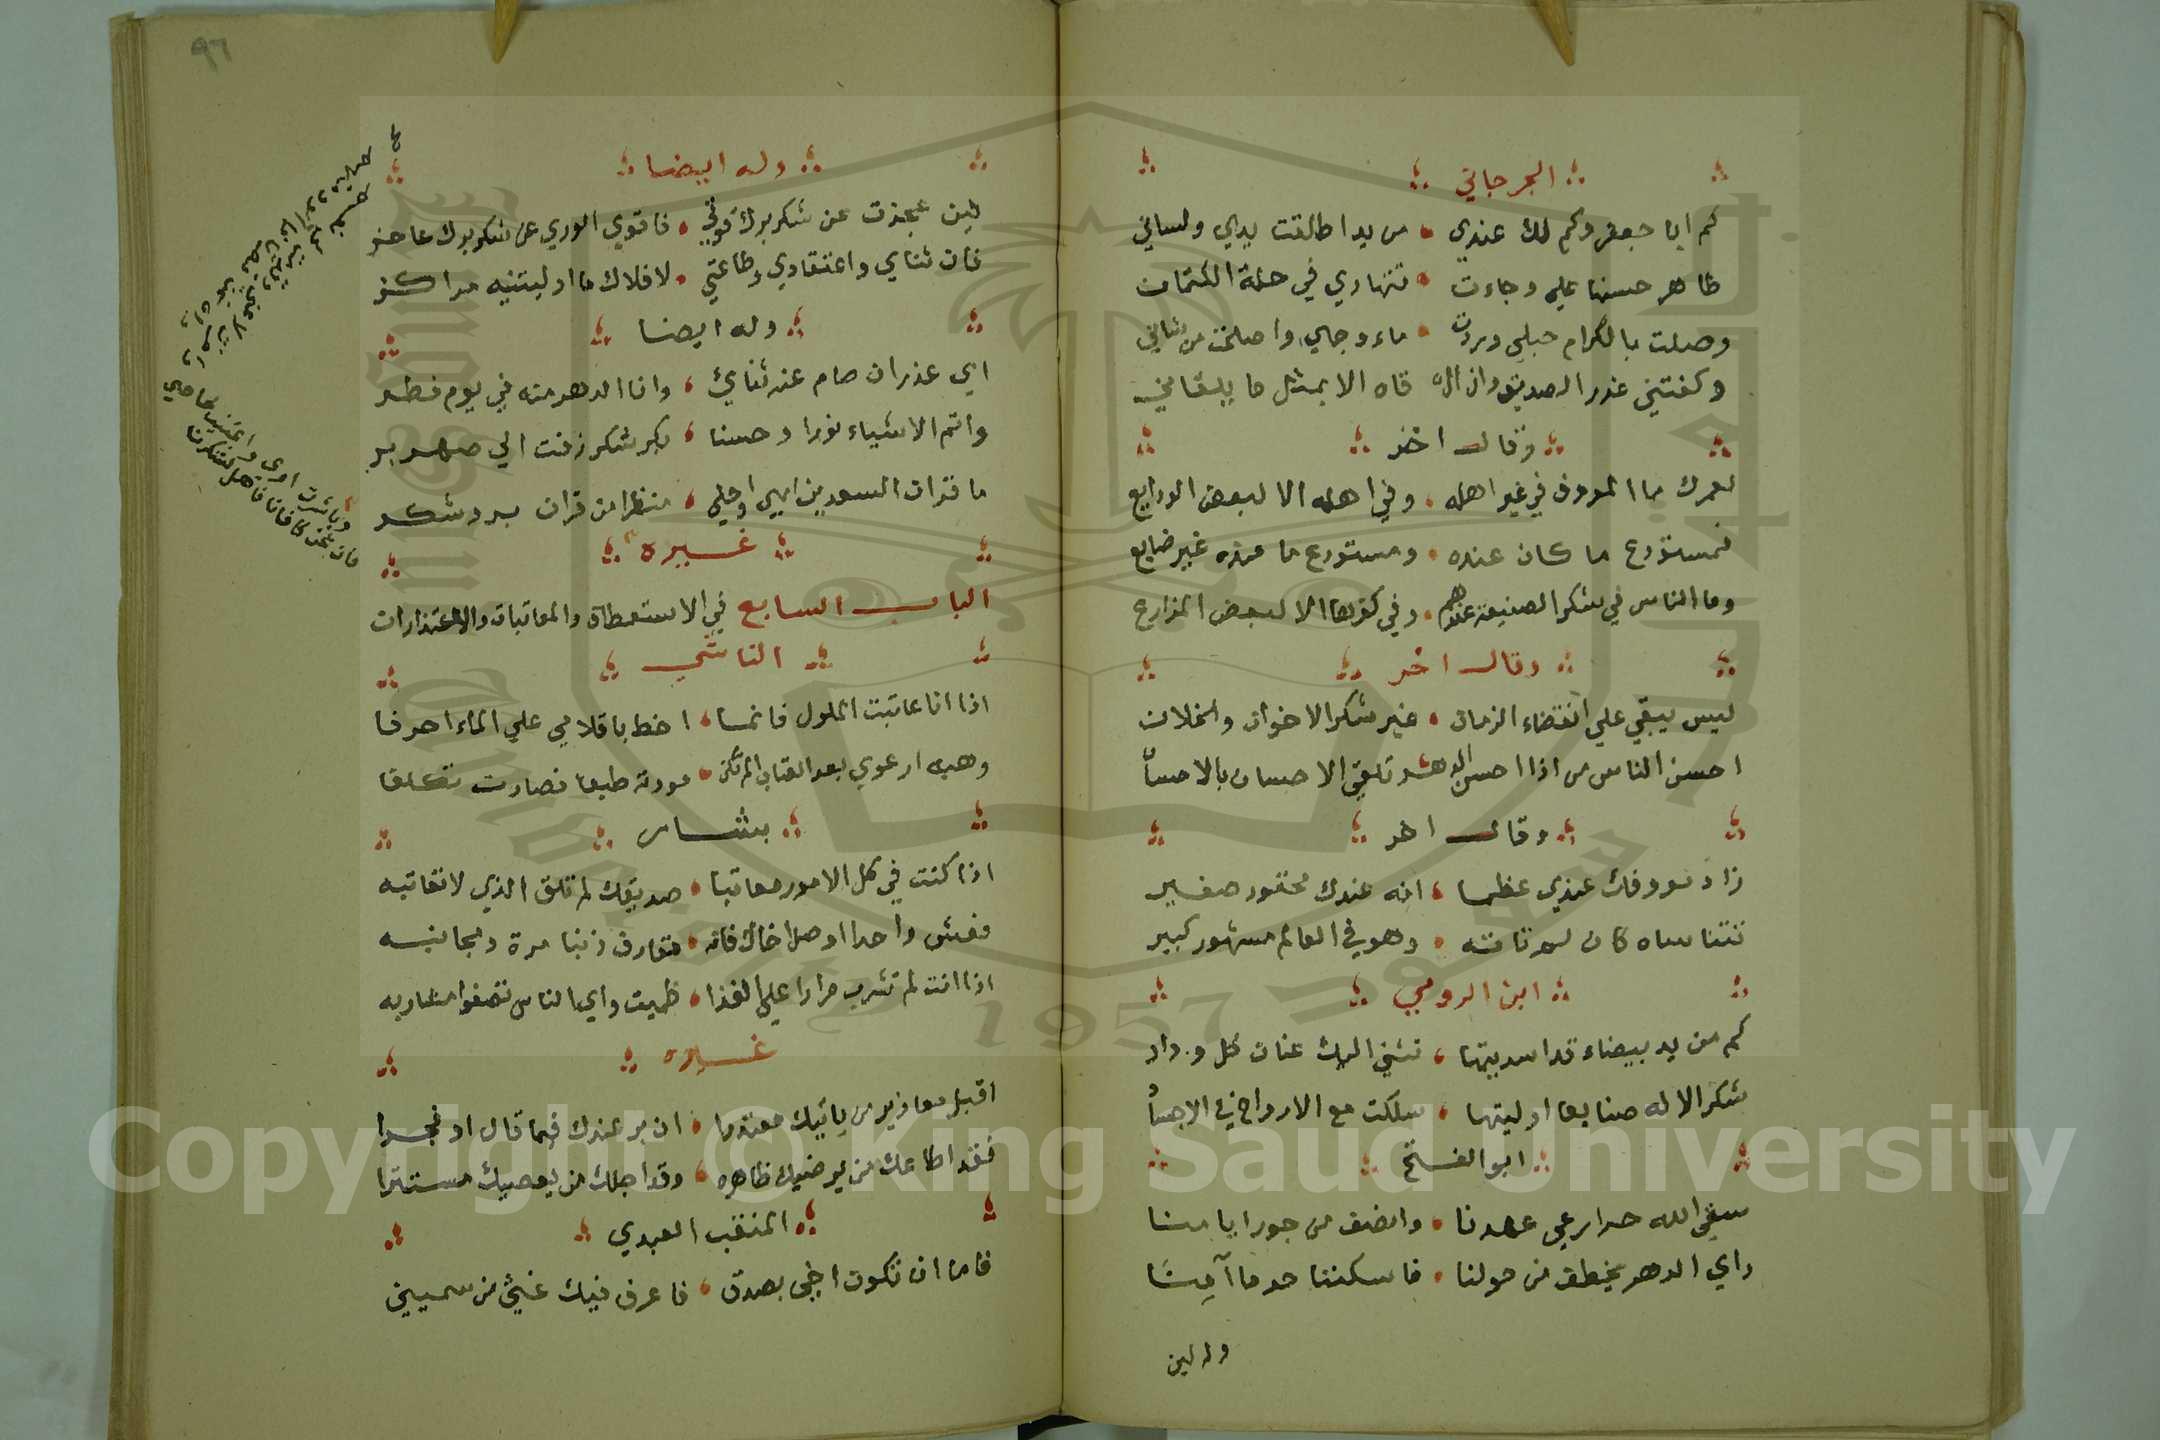 الجرجاني
كم ابا جعفر وكم لك عندي من يد اطالقت يدي ولساني
ظاهر حسنها علي وجاءت تتهادي في حلة الكتمان
وصلت بالكرام حبلي وردت ماء وجهي واصلحت من شاني
وكفتني غدر الصديق وان القاه الا بمثل ما يلقاني
وقال اخر
لعمرك ما المعروف في غير اهله وفي اهله الا لبعض الودايع
فمستودع ما كان عنده ومستودع ما عنده غير ضايع
وما الناس في شكر الصنيعة عندهم وفي كفرها الا لبعض المزارع
وقال اخر
ليس يبقي علي انقضاء الزمان غير شكر الاخوان والخلان
احسن الناس من اذا احسن الدهر تلقي الاحسان بالاحسان
وقال اخر
زاد معروفك عندي عظما انه عندك محقور صغير
تتناساه كان لم تاته وهو في العالم مشهور كبير
ابن الرومي
كم من يد بيضاء قد اسديتها تثني اليك عنان كل وداد
شكر الاله صنايعا اوليتها سلكت مع الارواح في الاجساد
ابو الفتح
سقي الله حرا رعي عهدنا وانصف من جور ايامنا
راي الدهر يخطف من حولنا فاسكننا حرما آمنا
وله لين
٩٦
وله ايضا
لين عجزت عن شكر برك قوتي فاقوي الوري عن شكر برك عاجز
فان ثناي واعتقادي وطاعتي لافلاك ما اوليتنيه مراكز
وله ايضا
اي عذر ان صام عنه ثنايئ وانا الدهر منه في يوم فطر
واتم الاشياء نورا وحسنا بكر شكر زفت الي صهر بر
ما قران السعدين ابهي واحلي منظرا من قران بر وشكر
غيره
الباب السابع في الاستعطاف والمعاتبات والاعتذارات
الناشي
اذا انا عاتبت الملول فانما اخط باقلامي علي الماء احرفا
وهبه ارعوي بعد العتاب الم تكن مودته طبعا فصارت تكلفا
بشار
اذا كنت في كل الامور معاتبا صديقك لم تلق الذي لا تعاتبه
فعش واحدا او صل اخاك فانه مقارف ذنبا مرة ومجانبه
اذا انت لم تشرب مرارا علي القذا ظميت واي الناس تصفوا مشاربه
غيره
اقبل معاذير من ياتيك معتذرا ان بر عندك فيما قال او فجرا
فقد اطاعك من يرضيك ظاهره وقد اجلك من يعصيك مستترا
المثقب العبدي
فاما ان تكون اخي بصدق فاعرف فيك غثي من سميني
Copyright © King Saud University
1957